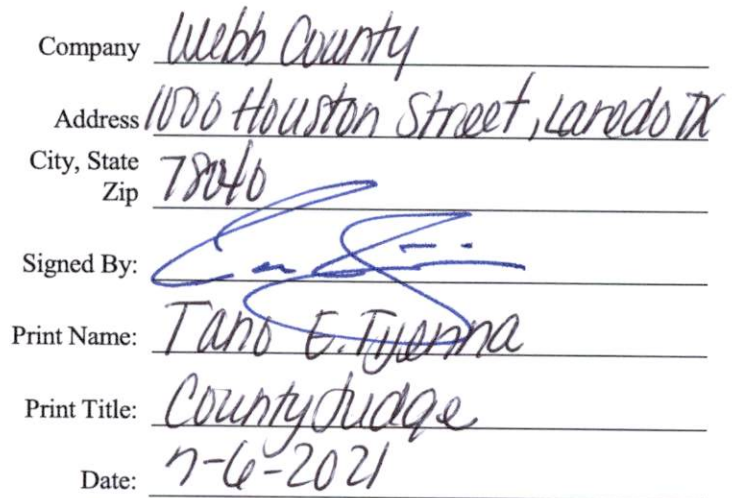 Company Webb County
Address 1000 Houston Street, Laredo TX
City, State
Zip 78040
Signed By:
Print Name: Tano E. Tijerina
Print Title: County Judge
Date: 7-6-2021